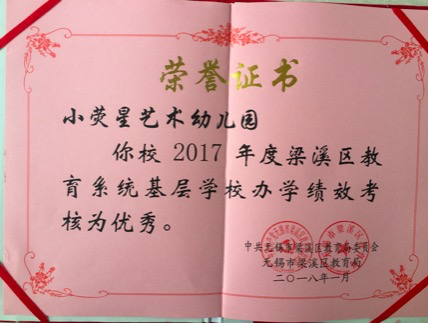 荣誉证书
小荧星艺术幼儿园
你校 2017 年度梁溪区教
育系统基层学校办学绩效考
核为优秀。
中共无锡市梁溪区教育局委员会
无锡市梁溪区教育局
二〇一八年一月